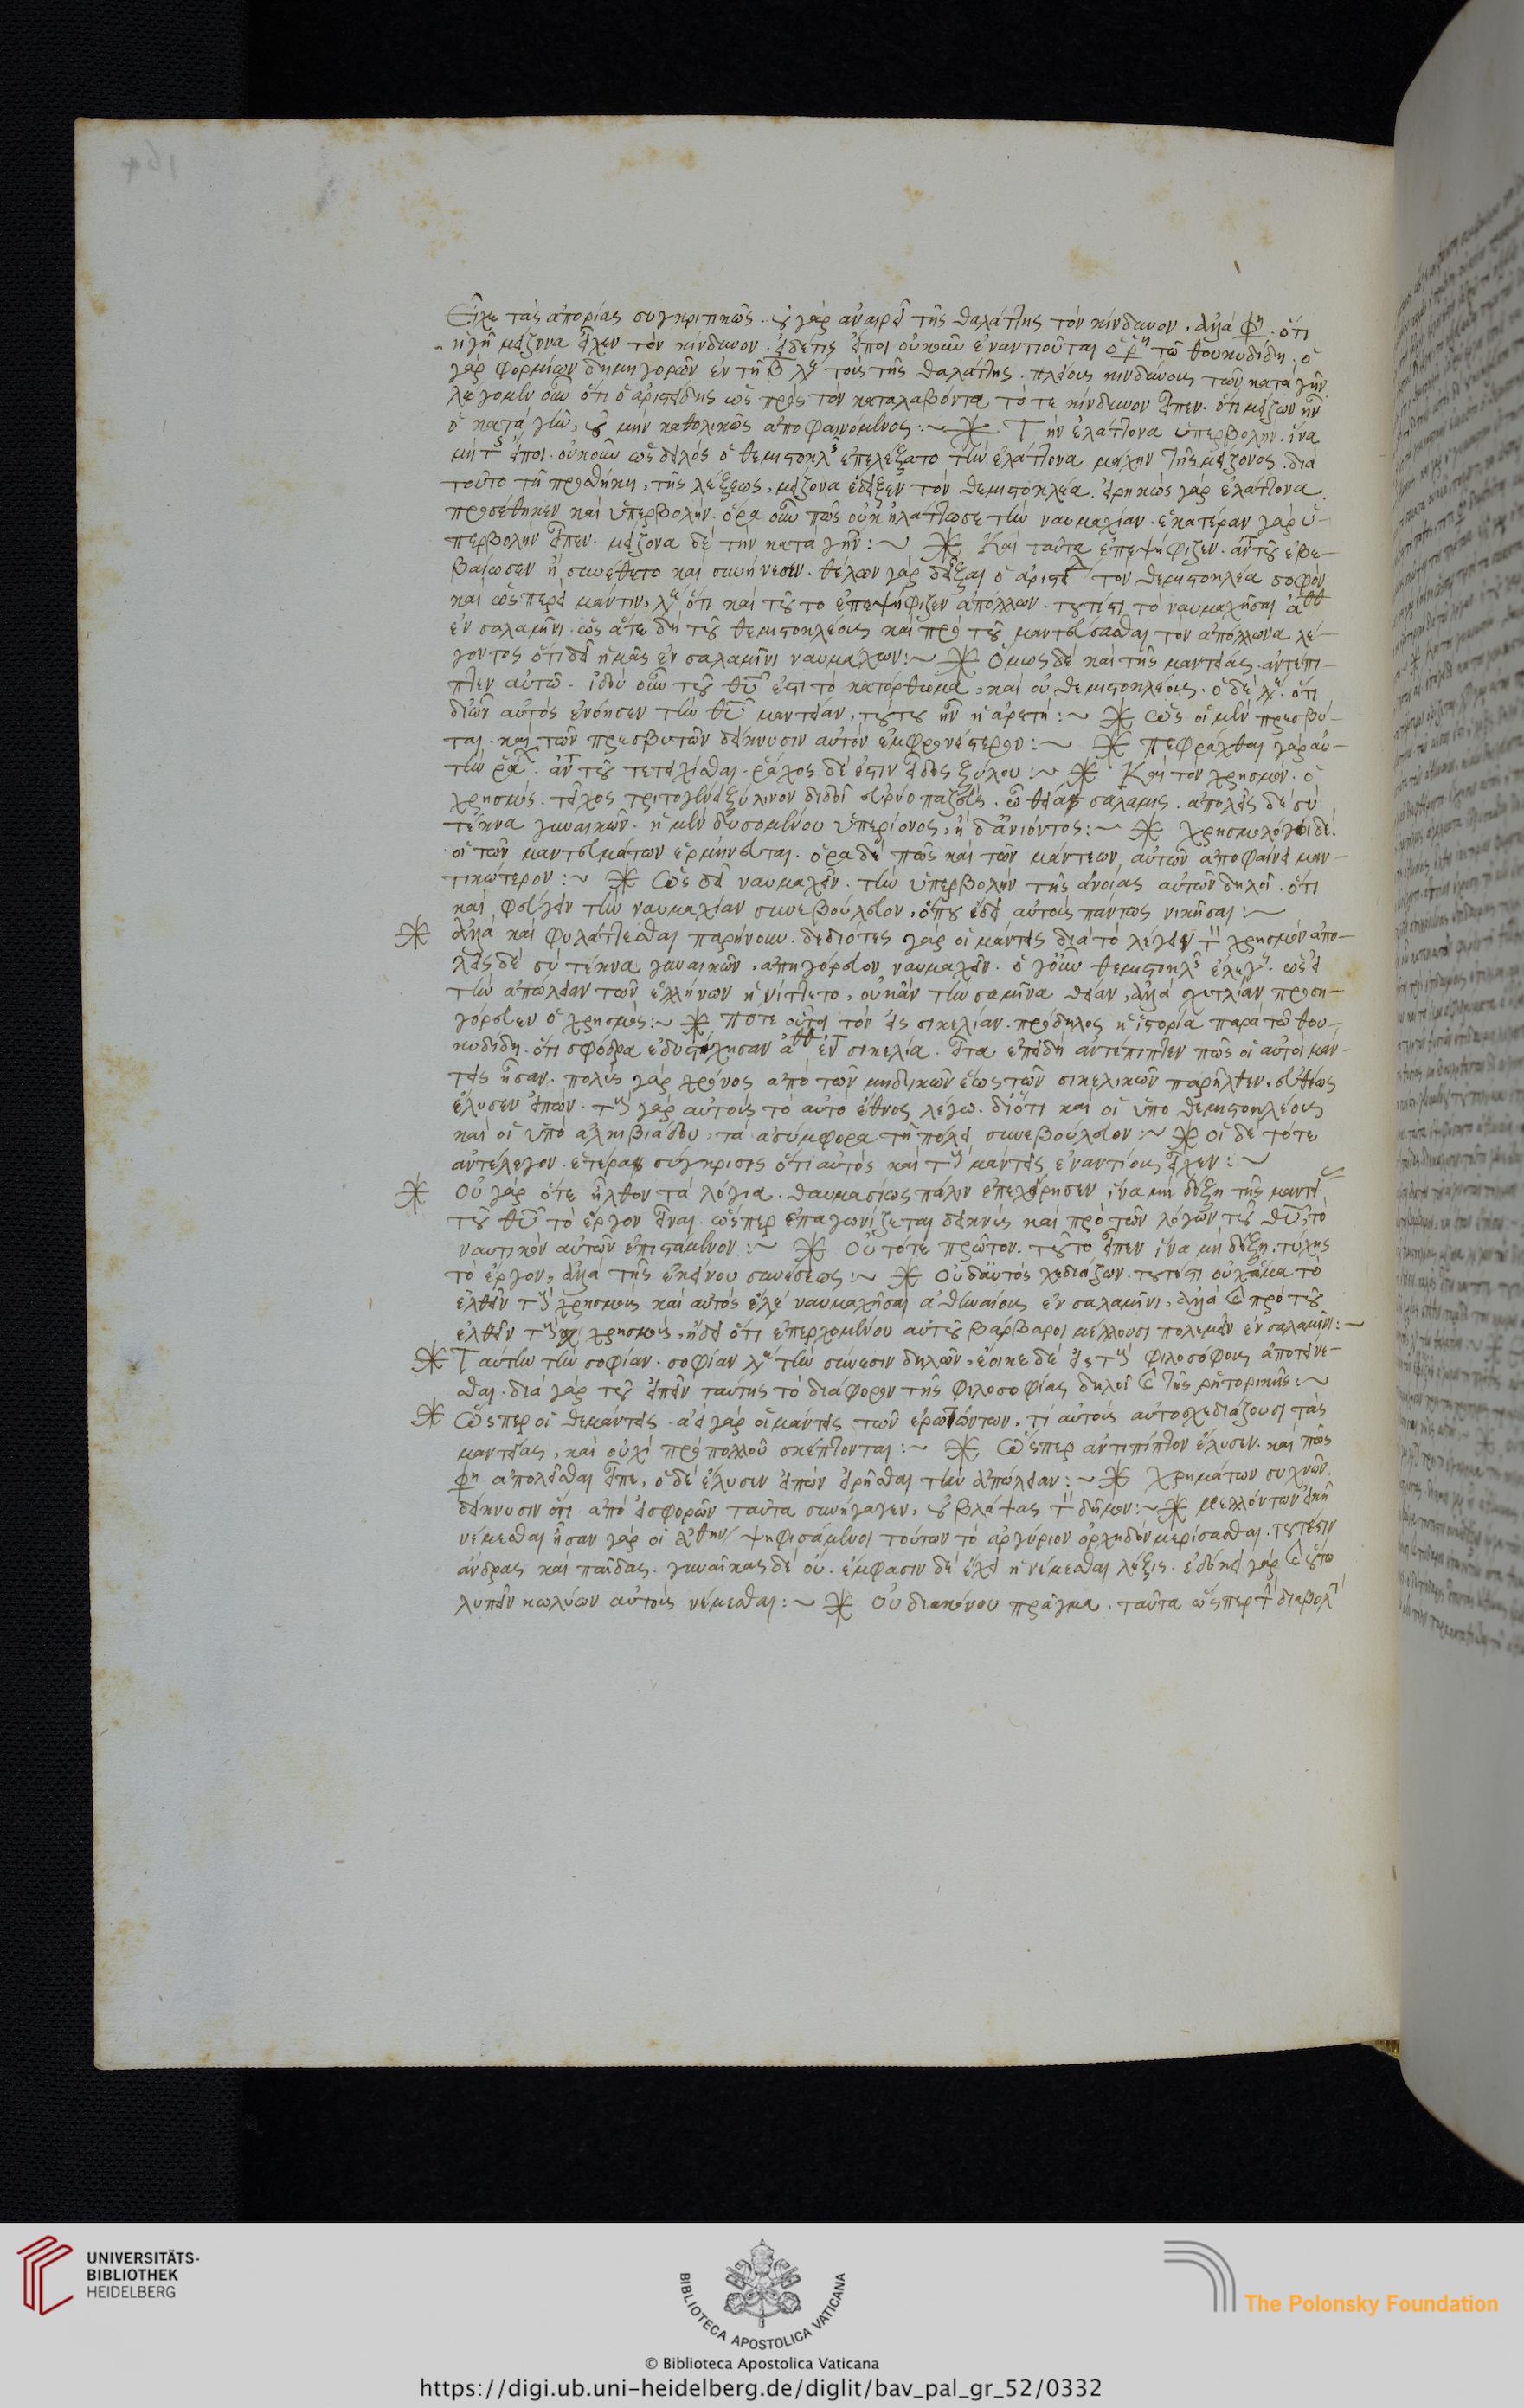 Εἶχε τὰς ἀπορίας συγκριτικῶς. οὐ γὰρ ἀναιρεῖ τῆς θαλάττης τὸν κίνδυνον, ἀλλά φη. ὅτι
ἡ γῆ μείζονα εἶχεν τὸν κίνδυνον. εἰ δέ τις εἴποι οὐκοῦν ἐναντιοῦται ὁ τῷ θουκυδίδη. ὁ
γὰρ φορμίων δημηγορῶν ἐν τῇ β λέγει τοὺς τῆς θαλάττης. πλείους κινδύνους τῶν κατὰ γῆν.
λέγομεν οὖν ὅτι ὁ ἀριστείδης ὡς πρὸς τὸν καταλαβόντα τότε κίνδυνον εἶπεν. ὅτι μείζων ἦν
ὁ κατὰ γῆν, οὐ μὴν καθολικῶς ἀποφαινόμενος :~ Τὴν ἐλάττονα ὑπερβολήν. ἵνα
μή τις εἴποι. οὐκοῦν ὡς δειλὸς ὁ θεμιστοκλῆς ἐπελέξατο τὴν ἐλάττονα μάχην τῆς μείζονος. διὰ
τοῦτο τῇ προσθήκη, τῆς λέξεως, μείζονα ἔδειξεν τὸν θεμιστοκλέα. εἰρηκὼς γὰρ ἐλάττονα.
προσέθηκεν καὶ ὑπερβολήν. ὅρα οὖν πῶς οὐκ ἠλάττωσε τὴν ναυμαχίαν. ἑκατέραν γὰρ ὑ-
περβολὴν εἶπεν. μείζονα δὲ τὴν κατὰ γῆν :~ Καὶ ταῦτα ἐπεψήφιζεν. ἀντὶ τοῦ ἐβε-
βαίωσεν ἢ συνέθετο καὶ συνήνεσεν. θέλων γὰρ δεῖξαι ὁ ἀριστείδης τὸν θεμιστοκλέα σοφὸν
καὶ ὥσπερ μάντιν, λέγει ὅτι καὶ τοῦτο ἐπεψήφιζεν ἀπόλλων. τουτέστι τὸ ναυμαχῆσαι
ἐν σαλαμῖνι. ὡς ἅτε δὴ τοῦ θεμιστοκλέους καὶ πρὸ τοῦ μαντεύσασθαι τὸν ἀπόλλωνα λέ-
γοντος ὅτι δεῖ ἡμᾶς ἐν σαλαμῖνι ναυμαχεῖν :~ Ὅμως δὲ καὶ τῆς μαντείας. ἀντέπι-
πτεν αὐτῷ. ἰδοὺ οὖν τοῦ θεοῦ ἐστι τὸ κατόρθωμα, καὶ οὐ θεμιστοκλέους. ὁ δὲ λέγει ὅτι
δι' ὧν αὐτὸς ἐνόησεν τὴν θεοῦ μαντείαν, τούτου ἦν ἡ ἀρετή :~ Ὡς οἱ μὲν πρεσβύ-
ται. καὶ τῶν πρεσβυτῶν δείκνυσιν αὐτὸν ἐμφρονέστερον :~ πεφράχθαι γὰρ αὐ-
τὴν ἀντὶ τοῦ τετειχίσθαι. ῥάχος δέ ἐστιν εἶδος ξύλου :~ Καὶ τὸν χρησμόν. ὁ
χρησμός. τεῖχος τριτογενεῖ ξύλινον διδοῖ εὐρύοπα ζεύς. ὦ θεία σαλαμίς. ἀπολεῖς δὲ σὺ
τέκνα γυναικῶν. ἢ μὲν δυσομένου ὑπερίονος, ἢ δ' ἀνιόντος :~ χρησμολόγοι δέ.
οἱ τῶν μαντευμάτων ἑρμηνευταί. ὅρα δὲ πῶς καὶ τῶν μάντεων αὐτῶν ἀποφαίνει μαν-
τικώτερον :~ Ὡς δεῖ ναυμαχεῖν. τὴν ὑπερβολὴν τῆς ἀνοίας αὐτῶν δηλοῖ. ὅτι
καὶ φεύγειν τὴν ναυμαχίαν συνεβούλευον, ὅπου ἔδει αὐτοὺς πάντως νικῆσαι :~
ἀλλὰ καὶ φυλάττεσθαι παρῄνουν. δεδιότες γὰρ οἱ μάντεις διὰ τὸ λέγειν τὸν χρησμὸν ἀπο-
λεῖς δὲ σὺ τέκνα γυναικῶν, ἀπηγόρευον ναυμαχεῖν. ὁ γοῦν θεμιστοκλῆς ἔλεγεν. ὡς εἰ
τὴν ἀπώλειαν τῶν ἑλλήνων ᾐνίττετο, οὐκ ἂν τὴν σαλαμῖνα θείαν, ἀλλὰ σχετλίαν προση-
γόρευεν ὁ χρησμός :~ πότε οὗτοι τὸν εἰς σικελίαν. πρόδηλος ἡ ἱστορία παρὰ τῷ θου-
κυδίδη. ὅτι σφόδρα ἐδυστύχησαν ἐν σικελία. εἶτα ἐπειδὴ ἀντέπιπτεν πῶς οἱ αὐτοὶ μάν-
τεις ἦσαν. πολὺς γὰρ χρόνος ἀπὸ τῶν μηδικῶν ἕως τῶν σικελικῶν παρῆλθεν, εὐθέως
ἔλυσεν εἰπών. τοὺς γὰρ αὐτοὺς τὸ αὐτὸ ἔθνος λέγω. διότι καὶ οἱ ὑπὸ θεμιστοκλέους
καὶ οἱ ὑπὸ ἀλκιβιάδου, τὰ ἀσύμφορα τῇ πόλει συνεβούλευον :~ οἱ δὲ τότε
ἀντέλεγον. ἑτέρα σύγκρισις ὅτι αὐτὸς καὶ τοὺς μάντεις ἐναντίους εἶχεν :~
Οὐ γὰρ ὅτε ἦλθον τὰ λόγια. θαυμασίως πάλιν ἐπεχείρησεν ἵνα μὴ δόξη τῆς μαντείας
τοῦ θεοῦ τὸ ἔργον εἶναι. ὥσπερ ἐπαγωνίζεται δεικνὺς καὶ πρὸ τῶν λόγων τοῦ θεοῦ, τὸ
ναυτικὸν αὐτῶν ἐπιστάμενον :~ Οὐ τότε πρῶτον. τοῦτο εἶπεν ἵνα μὴ δόξη. τύχης
τὸ ἔργον, ἀλλὰ τῆς ἐκείνου συνέσεως :~ Οὐδ' αὐτὸς σχεδιάζων. τουτέστι οὐχ ἅμα τὸ
ἐλθεῖν τοὺς χρησμοὺς καὶ αὐτὸς ναυμαχῆσαι ἀθηναίους ἐν σαλαμῖνι, ἀλλὰ καὶ πρὸ τοῦ
ἐλθεῖν τοὺς χρησμούς, ᾔδει ὅτι ἐπερχομένου αὐτοῦ βάρβαροι μέλλουσι πολεμεῖν ἐν σαλαμῖνι :~
Ταύτην τὴν σοφίαν. σοφίαν λέγει τὴν σύνεσιν δηλῶν, ἔοικε δὲ εἰς τοὺς φιλοσόφους ἀποτείνε-
σθαι. διὰ γὰρ τοῦ εἰπεῖν ταύτης τὸ διάφορον τῆς φιλοσοφίας δηλοῖ καὶ τῆς ῥητορικῆς :~
Ὥσπερ οἱ θεμάντεις. ἀεὶ γὰρ οἱ μάντεις τῶν ἐρωτώντων, τί αὐτοῖς αὐτοσχεδιάζουσι τὰς
μαντείας, καὶ οὐχὶ πρὸ πολλοῦ σκέπτονται :~ Ὥσπερ ἀντιπίπτον ἔλυσεν. καὶ πῶς
φη ἀπολεῖσθαι εἶπε, ὁ δὲ ἔλυσεν εἰπὼν εἰρῆσθαι τὴν ἀπώλειαν :~ χρημάτων συχνῶν.
δείκνυσιν ὅτι ἀπὸ εἰσφορῶν ταῦτα συνήγαγεν, οὐ βλάψας τὸν δῆμον :~ μελλόντων εἰκῆ
νέμεσθαι ἦσαν γὰρ οἱ ἀθην ψηφισάμενοι τούτων τὸ ἀργύριον ὀρχηδὸν μερίσασθαι. τουτέστιν
ἄνδρας καὶ παῖδας. γυναῖκας δὲ οὔ. ἔμφασιν δὲ ἔχει ἡ νέμεσθαι λέξις. ἐδόκει γὰρ
λυπεῖν κωλύων αὐτοὺς νέμεσθαι :~ Οὐ διακόνου πρᾶγμα. ταῦτα ὥσπερ διαβολ
UNIVERSITÄTS-
BIBLIOTHEK
HEIDELBERG
BIBLIOTECA APOSTOLICA VATICANA
The Polonsky Foundation
© Biblioteca Apostolica Vaticana
https://digi.ub.uni-heidelberg.de/diglit/bav_pal_gr_52/0332